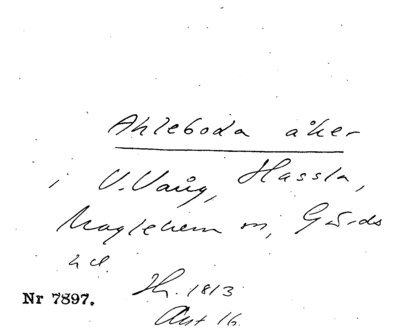 Ahleboda åker
i V. Vång, Hassla,
Maglehem m, Gärds
hd.
Nr 7897.
Sk. 1813
Akt 16.